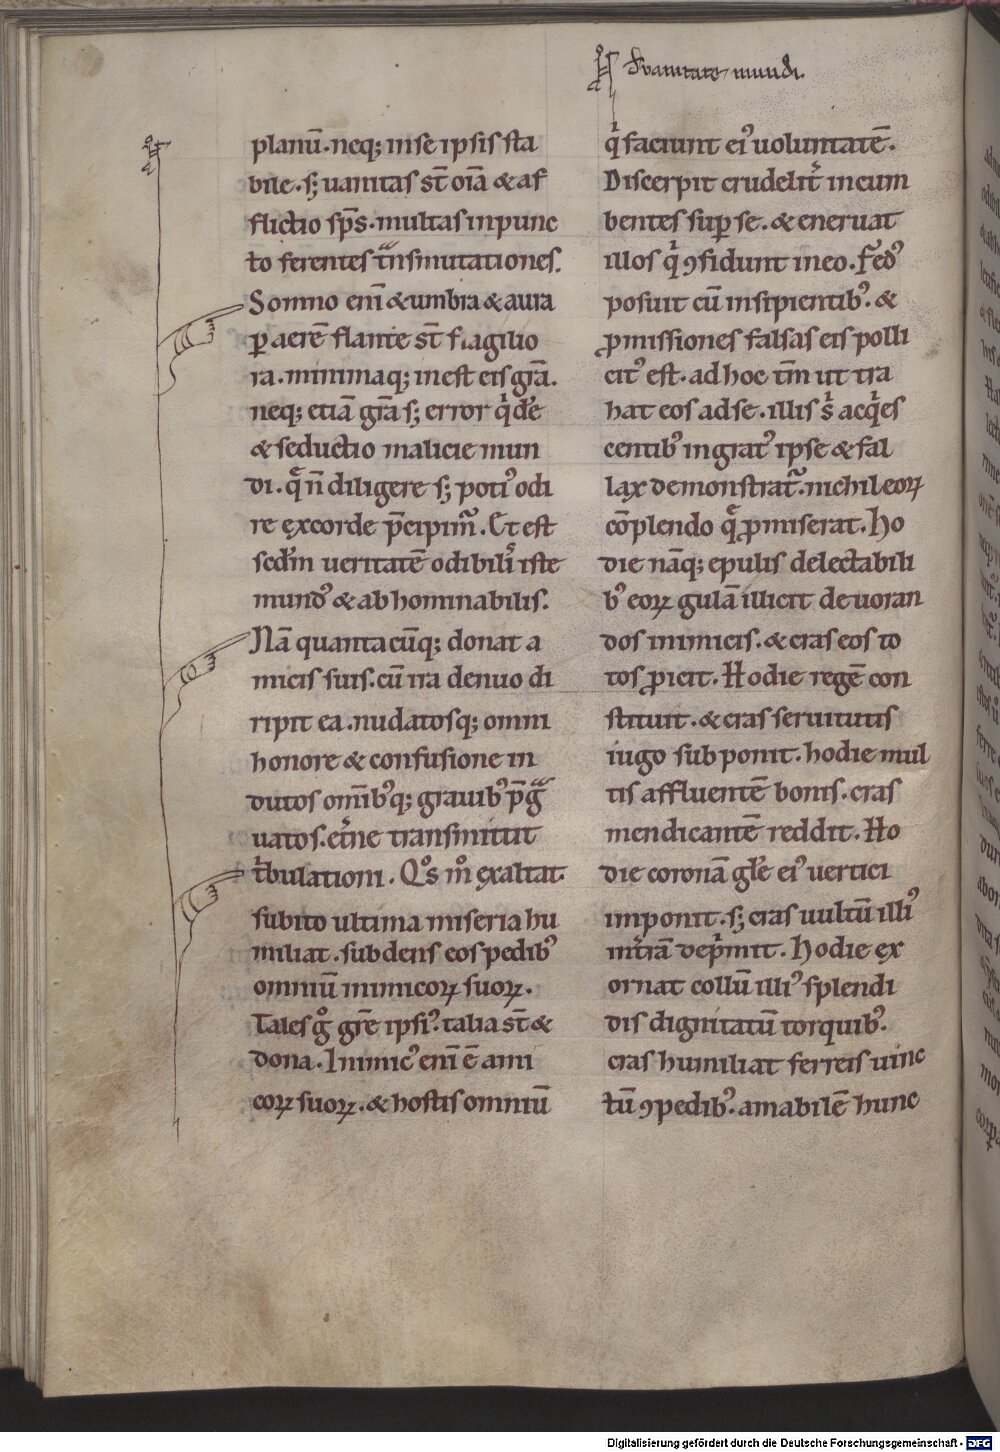 de uanitate mundi.
planū. neq; in se ipsis sta
bile. s; uanitas st̄ oīa & af
flictio sp̄s. multas in punc
to ferentes tᷓnsmutationes.
Somno eni᷎ & umbra & aura
ꝑ aerē flante st̄ fragilio
ra. minimaq; inest eis gr̄a.
neq; etiā gr̄a s; error q͛dē
& seductio malicie mun
di. q̄ n̄ diligere s; poti᷒ odi
re ex corde p̄cipim̄. Et est
scd̄m ueritatē odibilis̄ iste
mund᷒ & abhominabilis.
Nā quantacūq; donat a
micis suis. cū ira denuo di
ripit ea. nudatosq; omni
honore & confusione in
dutos om̄ib᷒q; grauib᷒ p̄gͣ
uatos. et̄ne transmittit
t͛bulationi. Qͦs m̊ exaltat
subito ultima miseria hu
miliat. subdens eos pedib᷒
omniū inimicoꝝ suoꝝ.
Tales gͦ gr̄e ipsi᷒. talia st̄ &
dona. Inimic᷒ eni᷎ ē ami
coꝝ suoꝝ. & hostis omniū
q͛ faciunt ei᷒ uoluntatē.
Discerpit crudelit͛ incum
bentes suꝑ se. & eneruat
illos q͛ ꝯfidunt in eo. Fed᷒
posuit cū insipientib᷒. &
ꝓmissiones falsas eis polli
cit᷒ est. ad hoc tm̄ ut tra
hat eos ad se. illis s͛ acq͛es
centib᷒ ingrat᷒ ipse & fal
lax demonstrat᷑. nichil eoꝝ
cōplendo q̄ ꝓmiserat. Ho
die nāq; epulis delectabili
b᷒ eoꝝ gulā illicit deuoran
dos inimicis. & cras eos to
tos ꝓicit. Hodie regē con
stituit. & cras seruitutis
iugo subponit. hodie mul
tis affluentē bonis. cras
mendicantē reddit. Ho
die coronā gl̄e ei᷒ uertici
imponit. s; cras uultū illi᷒
in t͛rā dep͛mit. Hodie ex
ornat collū illi᷒ splendi
dis dignitatū torquib᷒.
cras humiliat ferreis uinc
tū ꝯpedib᷒. amabilē hunc
Digitalisierung gefördert durch die Deutsche Forschungsgemeinschaft - DFG